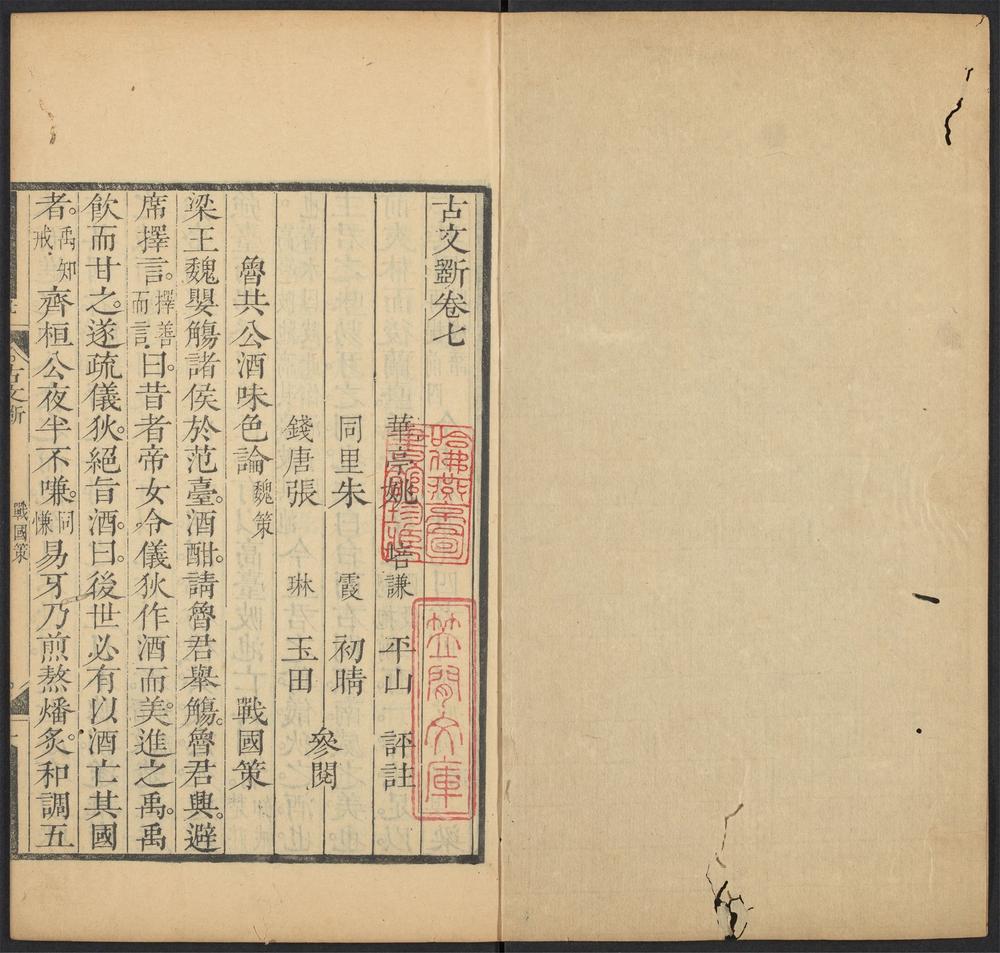 古文斲卷七
華亭姚培謙平山評註
同里朱霞初晴
參閱
錢唐張琳玉田
魯共公酒味色論魏策 戰國策
梁王魏嬰觴諸侯於范臺。酒酣。請魯君舉觴。魯君興。避
席擇言。擇善而言。曰。昔者帝女令儀狄作酒而美。進之禹。禹
飲而甘之。遂疏儀狄。絕旨酒。曰。後世必有以酒亡其國
者。禹知戒。齊桓公夜半不嗛。同慊易牙乃煎熬燔炙。和調五
古文斲
戰國策
哈佛燕京圖書館珍藏
文庫